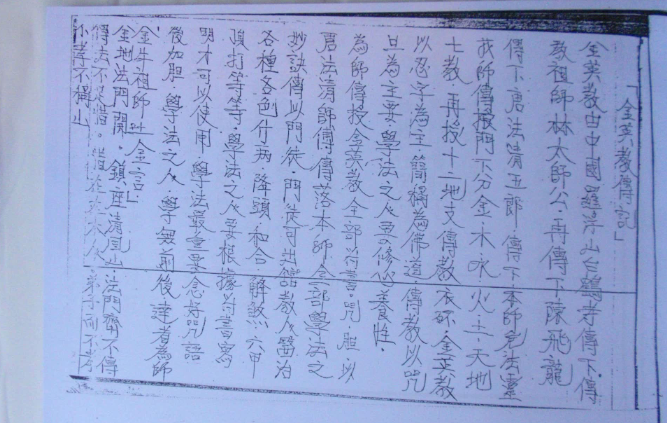 「金英教傳記」
金英教由中國羅浮山白鶴寺傳下.傳
教祖師林太師公.再傳下陳飛龍
傳下唐法清五郎.傳下本師 法靈
我師傳授門下分金.木.水.火.土.天地
七教.再授十二地支傳教 金英教
以忍字為主簡稱為佛道.傳教以咒
旦為主要.學法之人要修心養性.
為師傳授金英教全部符書.咒.胆.以
唐法清師傅傳落本師全部學法之
妙訣傳以門徒.門徒可出館教人醫治
各種各色什病.降頭.和合.解煞.六甲
頂打等等.學法之人要根據符書寫
明才可以使用.學法最重要念好咒語
後加胆.學法之人.學無前後達者為師
金英祖師 金言」
金地法門開.鎮 清風山.法門齊不傳
傳法不